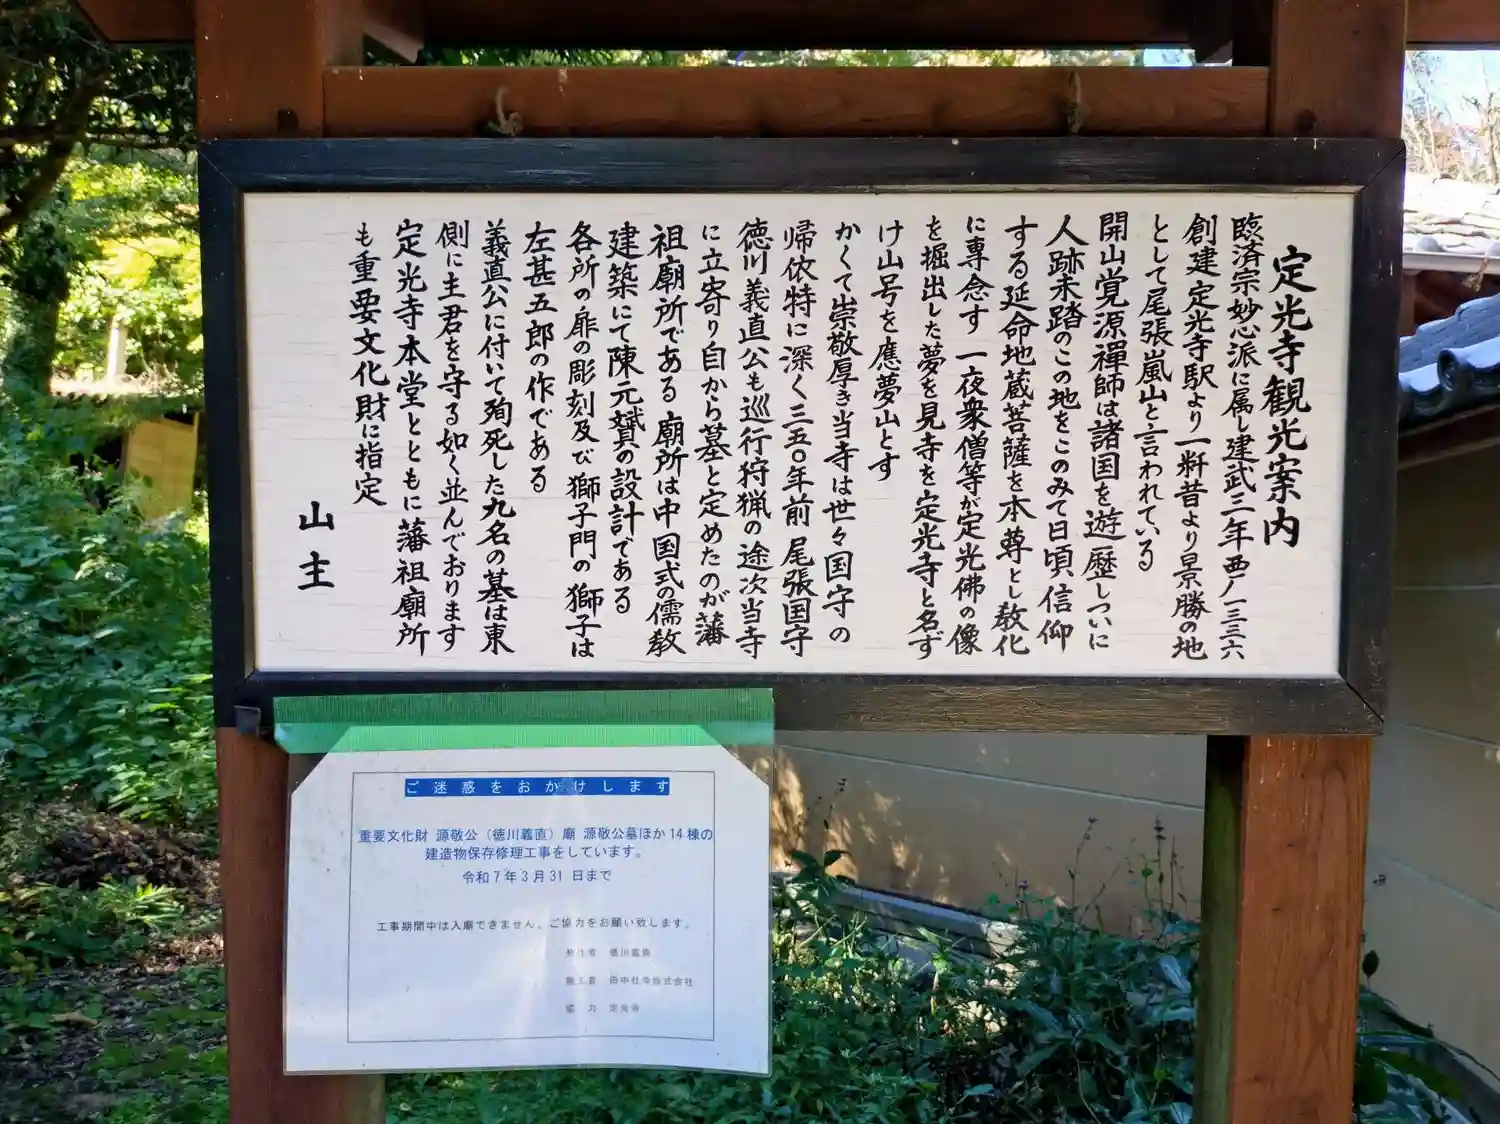 定光寺観光案内
臨済宗妙心派に属し建武三年西ノ一三三六
創建定光寺駅より一粁昔より景勝の地
として尾張嵐山と言われている
開山覚源禪師は諸国を遊歴しついに
人跡未踏のこの地をこのみて日頃信仰
する延命地蔵菩薩を本尊とし教化
に専念す 一夜衆僧等が定光佛の像
を掘出した夢を見寺を定光寺と名ず
け山号を應夢山とす
かくて崇敬厚き当寺は世々国守の
帰依特に深く三五〇年前 尾張国守
徳川義直公も巡行狩猟の途次当寺
に立寄り自から墓と定めたのが藩
祖廟所である 廟所は中国式の儒教
建築にて陳元贇の設計である
各所の扉の彫刻及び獅子門の獅子は
左甚五郎の作である
義直公に付いて殉死した九名の墓は東
側に主君を守る如く並んでおります
定光寺本堂とともに藩祖廟所
も重要文化財に指定
山主
ご迷惑をおかけします
重要文化財 源敬公（徳川義直）廟 源敬公墓ほか14棟の
建造物保存修理工事をしています。
令和7年3月31日まで
工事期間中は入廟できません、ご協力をお願い致します。
発注者 徳川義崇
施工者 田中社寺株式会社
協 力 定光寺